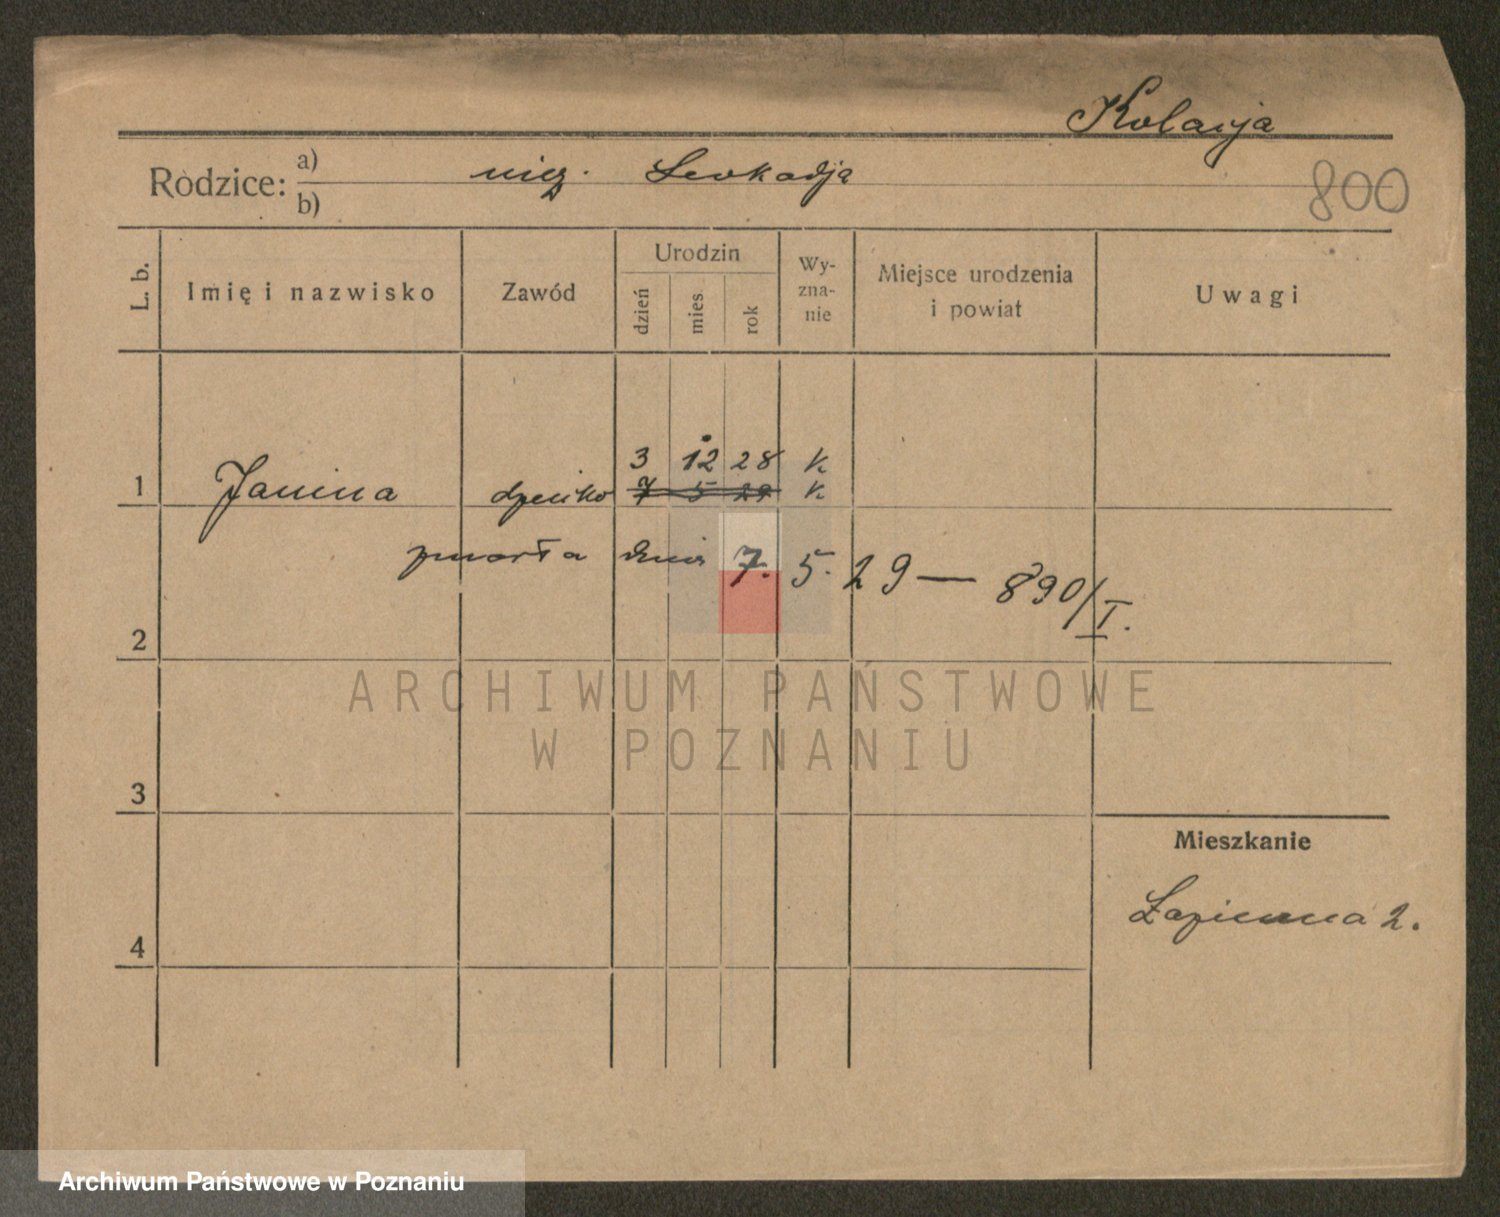 Kolasja
Rodzice: a) niez. Leokadja
b)
800
L. b.
Imię i nazwisko
Zawód
Urodzin
dzień
mies
rok
Wy-
zna-
nie
Miejsce urodzenia
i powiat
Uwagi
3 12 28 k
1 Janina dziecko 7 5 29 k
zmarła dnia 7. 5. 29 — 890/I.
2
ARCHIWUM PAŃSTWOWE
W POZNANIU
3
Mieszkanie
Łazienna 2.
4
Archiwum Państwowe w Poznaniu